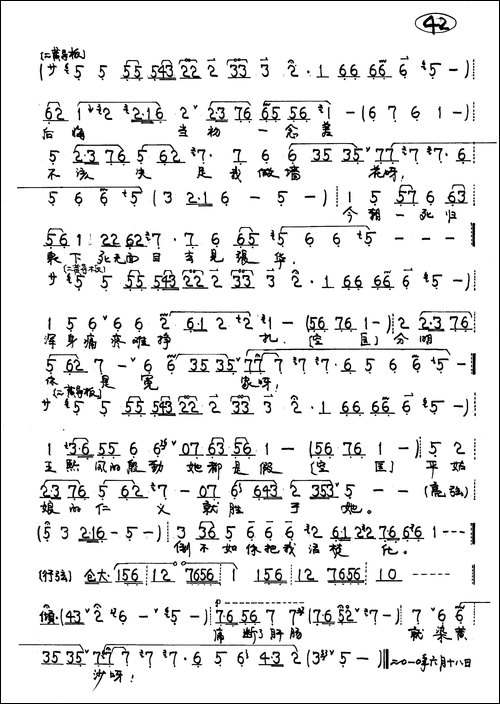 42
(二黄导板)
(サ 5 5 55 543 22 2 33 3 2· 1 66 66 6 5 -)
62 1 2 2·16 2 23 76 65 56 1 - (6 7 6 1 -)
后悔 当初一念差
5 2·3 76 5 62 7· 7 6 6 35 35 77 7 7· 6
不该失足我做墙花呀!
5 6 6 5 (3 2·1 6 - 5 -) 1 5 57 6 63
今朝一死归
56 1 22 62 7· 7 6 65 5 6 6 5 - - -
下死无面目去见张华.
(二黄导板)
サ 5 5 55 543 22 2 33 3 2· 1 66 66 6 5 -)
1 5 6 6 6 2 6·1 2 2 1 - (56 76 1 -) 2 2·3 76
浑身痛疼难挣扎. [空匡] 分明
5 62 7 - 6 6 35 35 77 7 7· 6 5 6 5 -
你是冤家呀!
(二黄导板)
サ 5 5 55 543 22 2 33 3 2· 1 66 66 6 5 -)
1 3·6 55 6 6 07 63 56 1 - (56 76 1 -) 5 2
王熙凤的殷勤她都是假 [空匡] 平姑
23 76 5 62 7 - 07 6 643 2 353 5 - - (亮弦)
娘的仁义就胜于她。
(5 3 2·16 - 5 -) 3 36 5 6 6 6 2 61 22 76 676 1 ---
倒不如你把我活焚化。
(行弦) 仓大· 156 12 7656 1 156 12 7656 10 -----
(43 2 6 - 5 -) 76 56 7 7 (76 52 7 -) 7 6 6
痛断了肝肠 就染黄
35 35 77 7 7 7· 6 5 6 4·3 2 (3 5 -) 二〇一〇年六月十八日
沙呀!